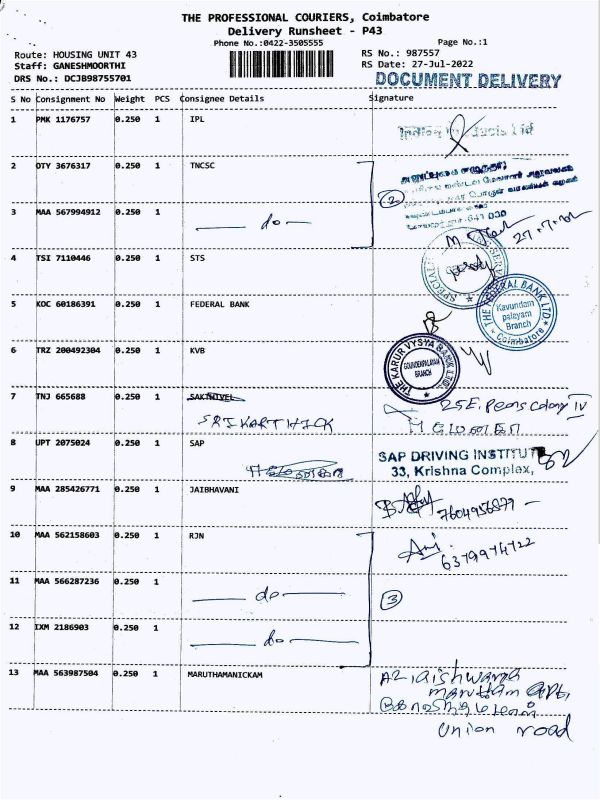 THE PROFESSIONAL COURIERS, Coimbatore
Delivery Runsheet - P43
Phone No.:0422-3505555
Page No.:1
Route: HOUSING UNIT 43
RS No.: 987557
Staff: GANESHMOORTHI
RS Date: 27-Jul-2022
DRS No.: DCJB98755701
DOCUMENT DELIVERY
S No Consignment No Weight PCS Consignee Details Signature
1 PMK 1176757 0.250 1 IPL
Ltd
2 OTY 3676317 0.250 1 TNCSC
2
3 MAA 567994912 0.250 1 do
641 030
27.7.22
4 TSI 7110446 0.250 1 STS
SPECIAL
5 KOC 60186391 0.250 1 FEDERAL BANK
THE FEDERAL BANK LTD.
Kavundam
palayam
Branch
Coimbatore
6 TRZ 200492304 0.250 1 KVB
THE KARUR VYSYA BANK LTD.
GOUNDENPALAYAM
BRANCH
7 TNJ 665688 0.250 1 SAKTHIVEL
SRIKARTHICK
25E. Peons Colony IV
8 UPT 2075024 0.250 1 SAP
SAP DRIVING INSTITUT
33, Krishna Complex,
9 MAA 285426771 0.250 1 JAIBHAVANI
7604956877
10 MAA 562158603 0.250 1 RJN
6379974722
11 MAA 566287236 0.250 1 do
3
12 IXM 2186903 0.250 1 do
13 MAA 563987504 0.250 1 MARUTHAMANICKAM
A2 aishwarya
marutham apt,
union road